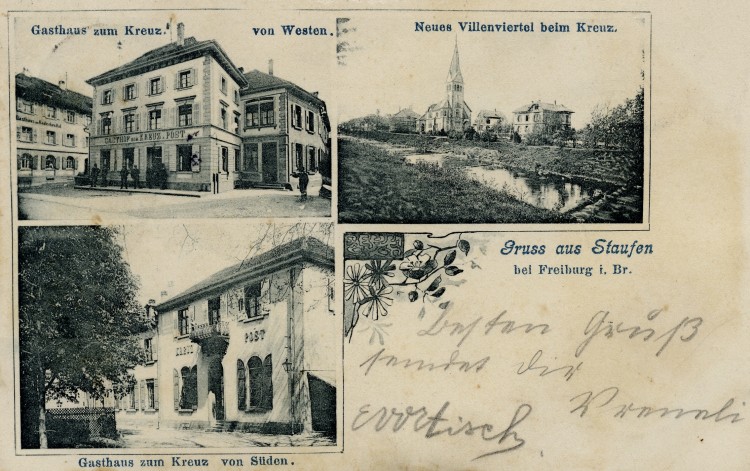 Gasthaus zum Kreuz. von Westen.
Neues Villenviertel beim Kreuz.
GASTHOF ZUM KREUZ & POST
KREUZ POST
Gruss aus Staufen
bei Freiburg i. Br.
Besten Gruß
sendet dir
Vreneli
Gasthaus zum Kreuz von Süden.